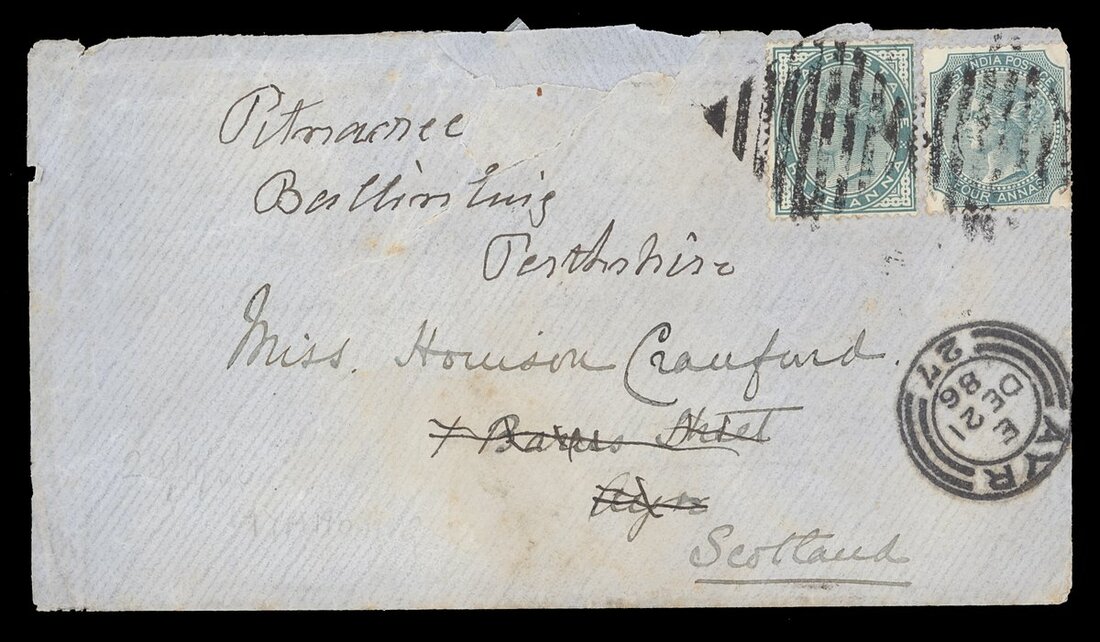 Pitnacree
Ballinluig
Perthshire
Miss. Howison Craufurd.
7 Barns Street
Ayr
Scotland
HALF ANNA
INDIA POSTAGE
FOUR ANNAS
AYR
27
E
21
DE
86